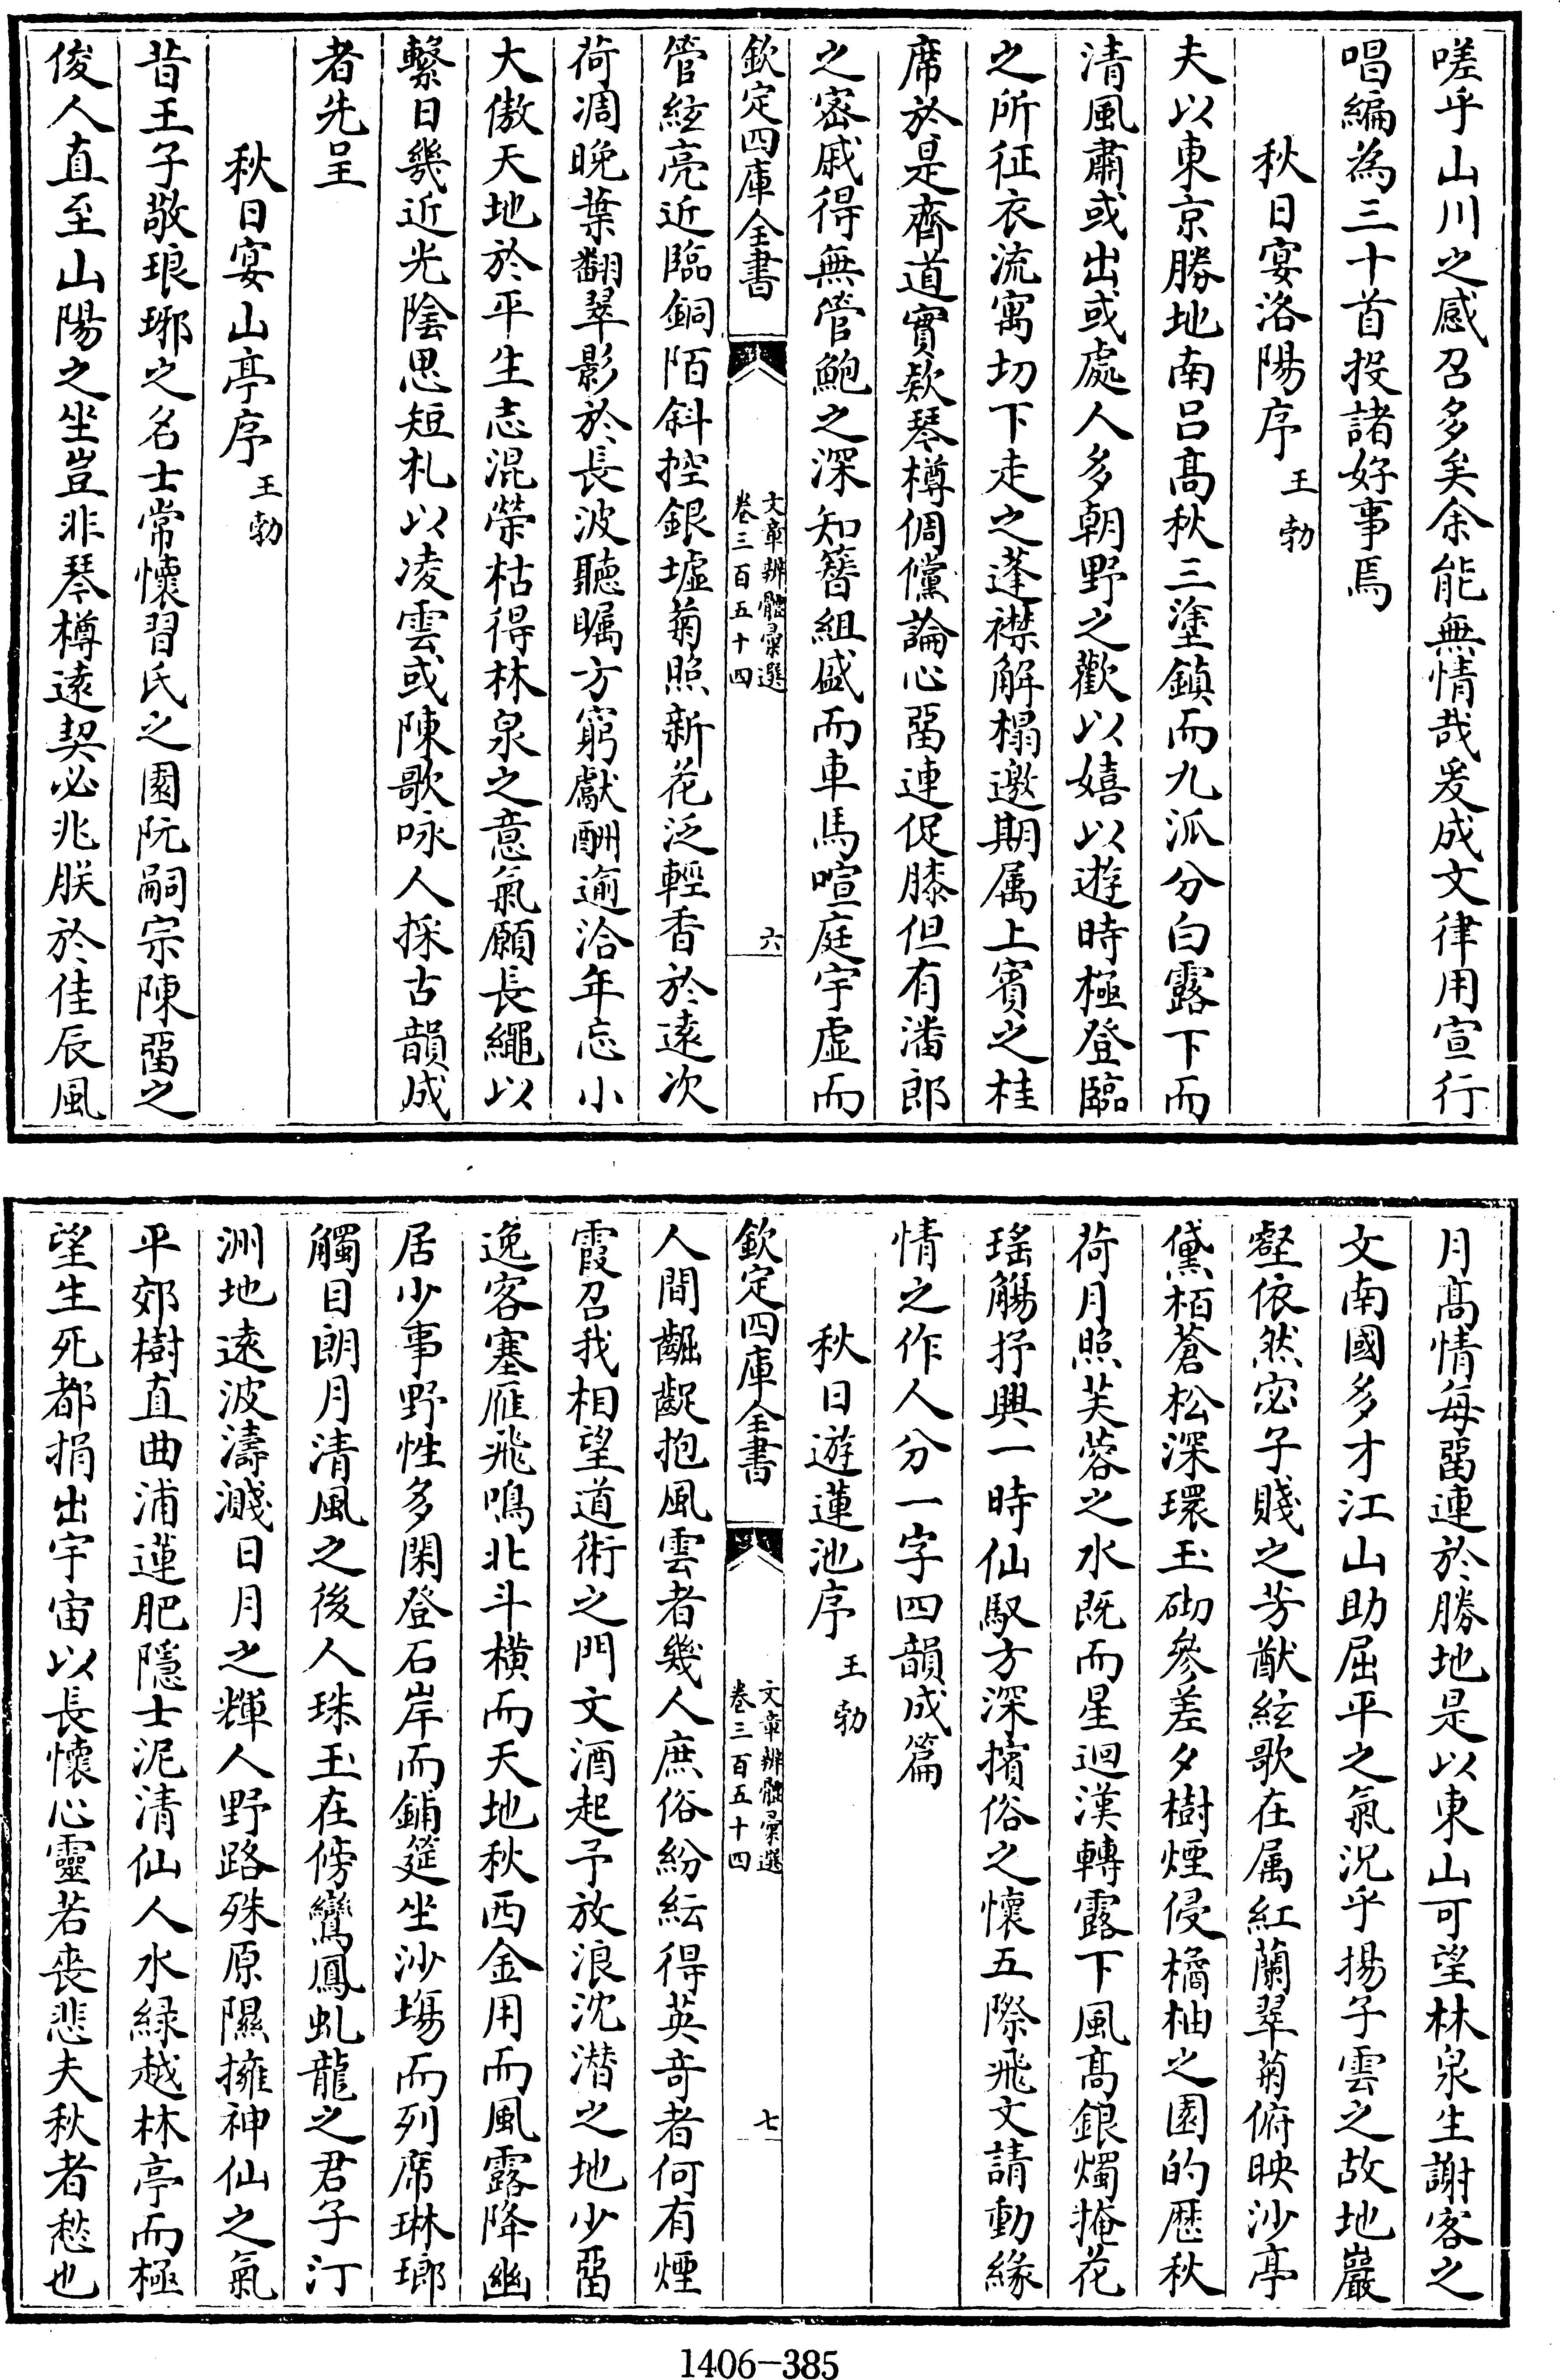 嗟乎山川之感召多矣余能無情哉爰成文律用宣行
唱編為三十首投諸好事焉
秋日宴洛陽序 王勃
夫以東京勝地南呂髙秋三塗鎮而九派分白露下而
清風肅或出或處人多朝野之歡以嬉以遊時極登臨
之所征衣流寓切下走之蓬襟解榻邀期属上賓之桂
席於是齊道實欵琴樽倜儻論心畱連促膝但有潘郎
之宻戚得無管鮑之深知簪組盛而車馬喧庭宇虛而
欽定四庫全書 文章辨體彚選 卷三百五十四 六
管絃亮近臨銅陌斜控銀墟菊照新花泛輕香於逺次
荷凋晚葉翻翠影於長波聽矚方窮獻酬逾洽年忘小
大傲天地於平生志混榮枯得林泉之意氣願長繩以
繫日幾近光陰思短札以凌雲或陳歌咏人採古韻成
者先呈
秋日宴山亭序 王勃
昔王子敬琅琊之名士常懷習氏之園阮嗣宗陳畱之
俊人直至山陽之坐豈非琴樽逺契必兆朕於佳辰風
月髙情每畱連於勝地是以東山可望林泉生謝客之
文南國多才江山助屈平之氣況乎揚子雲之故地巖
壑依然宓子賤之芳猷絃歌在属紅蘭翠菊俯映沙亭
黛栢蒼松深環玉砌參差夕樹煙侵橘柚之園的歴秋
荷月照芙蓉之水既而星迴漢轉露下風髙銀燭掩花
瑤觴抒興一時仙馭方深擯俗之懷五際飛文請動緣
情之作人分一字四韻成篇
秋日遊蓮池序 王勃
欽定四庫全書 文章辨體彚選 卷三百五十四 七
人間齷齪抱風雲者幾人庶俗紛紜得英竒者何有煙
霞召我相望道術之門文酒起予放浪沈潛之地少畱
逸客塞雁飛鳴北斗横而天地秋西金用而風露降幽
居少事野性多閑登石岸而鋪筵坐沙塲而列席琳瑯
觸目朗月清風之後人珠玉在傍鸞鳳虬龍之君子汀
洲地逺波濤濺日月之輝人野路殊原隰擁神仙之氣
平郊樹直曲浦蓮肥隱士泥清仙人水緑越林亭而極
望生死都捐出宇宙以長懷心靈若喪悲夫秋者愁也
1406-385